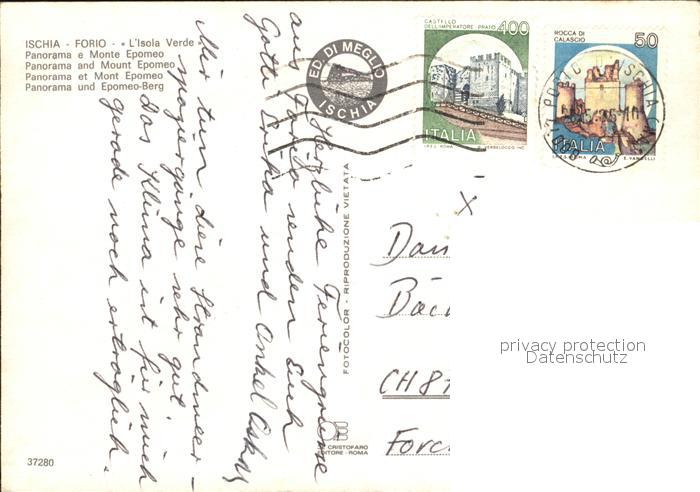 ISCHIA - FORIO - «L'Isola Verde»
Panorama e Monte Epomeo
Panorama and Mount Epomeo
Panorama et Mont Epomeo
Panorama und Epomeo-Berg
ED. DI MEGLIO
ISCHIA
CASTELLO
DELL'IMPERATORE - PRATO
400
ITALIA
I.P.Z.S. ROMA
ROCCA DI
CALASCIO
50
ITALIA
I.P.Z.S. ROMA E. VANGELLI
Herzliche Feriengrüsse
aus Forio senden Euch
Gotte Erika und Onkel
Mir tun diese Strandmeer-
spaziergänge sehr gut.
Das Klima ist für mich
gerade noch erträglich.
FOTOCOLOR - RIPRODUZIONE VIETATA
X
Dan
Bäc
CH 81
Forc
privacy protection
Datenschutz
CRISTOFARO
EDITORE - ROMA
37280